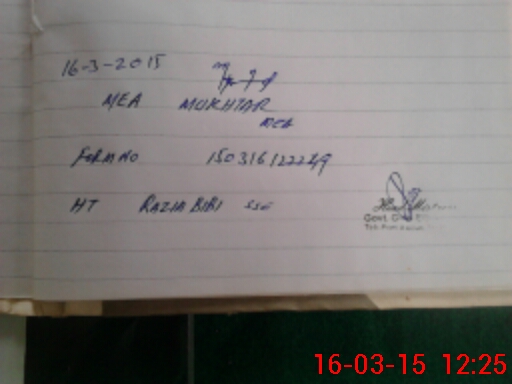 16-3-2015
MEA MUKHTAR
MEA
FORM NO 150316122249
HT RAZIA BIBI SSE
Govt.
16-03-15 12:25